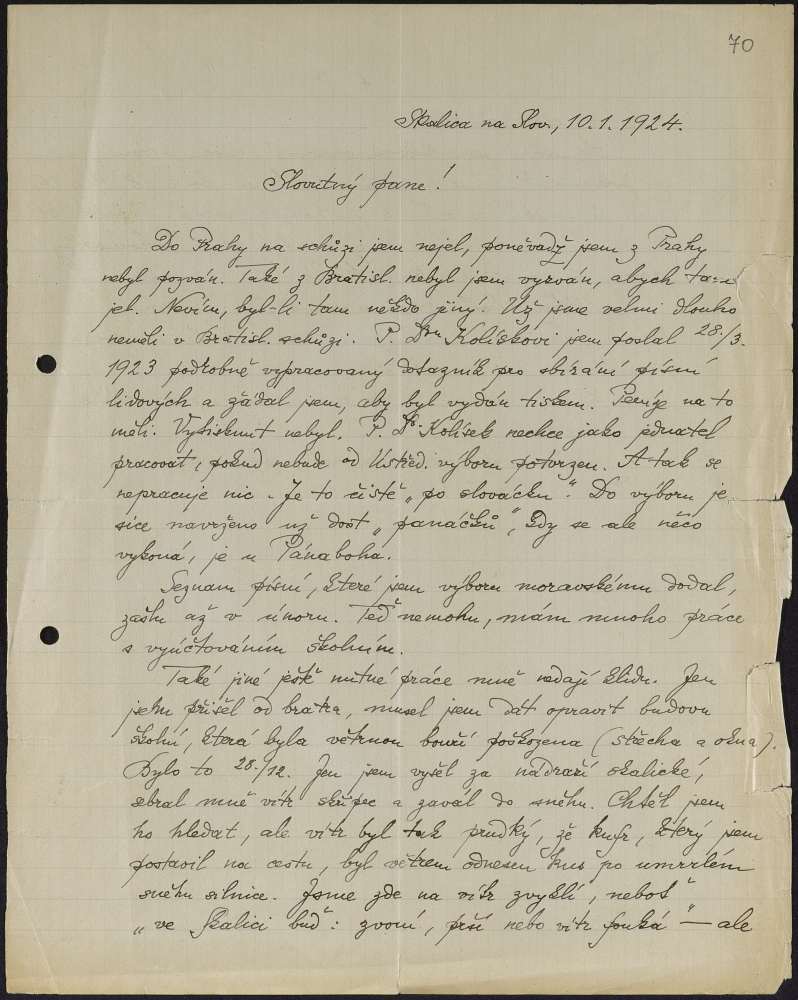 70
Skalica na Slov., 10.1.1924.
Slovutný pane!
Do Prahy na schůzi jsem nejel, poněvadž jsem z Prahy
nebyl pozván. Také z Bratisl. nebyl jsem vyzván, abych tam
jel. Nevím, byl-li tam někdo jiný. Už jsme velmi dlouho
neměli v Bratisl. schůzi. P. Dru Kolískovi jsem poslal 28./3.
1923 podrobně vypracovaný dotazník pro sbírání písní
lidových a žádal jsem, aby byl vydán tiskem. Peníze na to
měli. Vytisknut nebyl. P. Dr. Kolísek nechce jako jednatel
pracovat, pokud nebude od Ústřed. výboru potvrzen. A tak se
nepracuje nic. Je to čistě „po slovácku". Do výboru je
sice navrženo už dost „panáčků", kdy se ale něco
vykoná, je u Pánaboha.
Seznam písní, které jsem výboru moravskému dodal,
zašlu až v únoru. Teď nemohu, mám mnoho práce
s vyúčtováním školním.
Také jiné ještě nutné práce mně nedají klidu. Jen
jsem přišel od bratra, musel jsem dát opravit budovu
školní, která byla větrnou bouří poškozena (střecha a okna).
Bylo to 28./12. Jen jsem vyšel za nádraží skalické,
sebral mně vítr skřipec a zavál do sněhu. Chtěl jsem
ho hledat, ale vítr byl tak prudký, že kufr, který jsem
postavil na cestu, byl větrem odnesen kus po umrzlém
sněhu silnice. Jsme zde na vítr zvyklí, neboť
„ve Skalici buď: zvoní, prší nebo vítr fouká" — ale